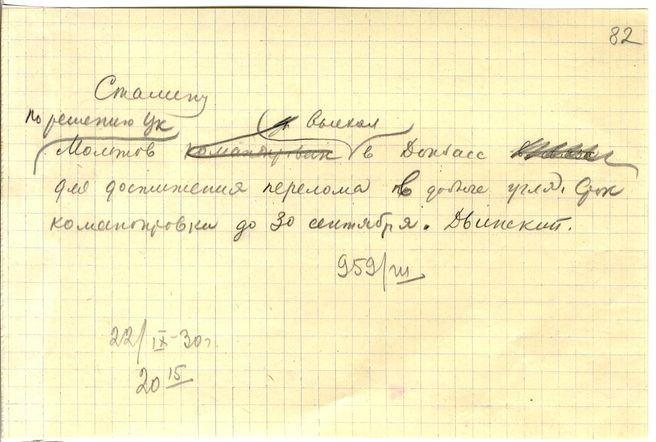 82
Сталину
По решению Цк выехал
Молотов командирован в Донбасс
для достижения перелома в добыче угля. Срок
командировки до 30 сентября. Двинский.
959/ш
22/IX-30г.
20 15